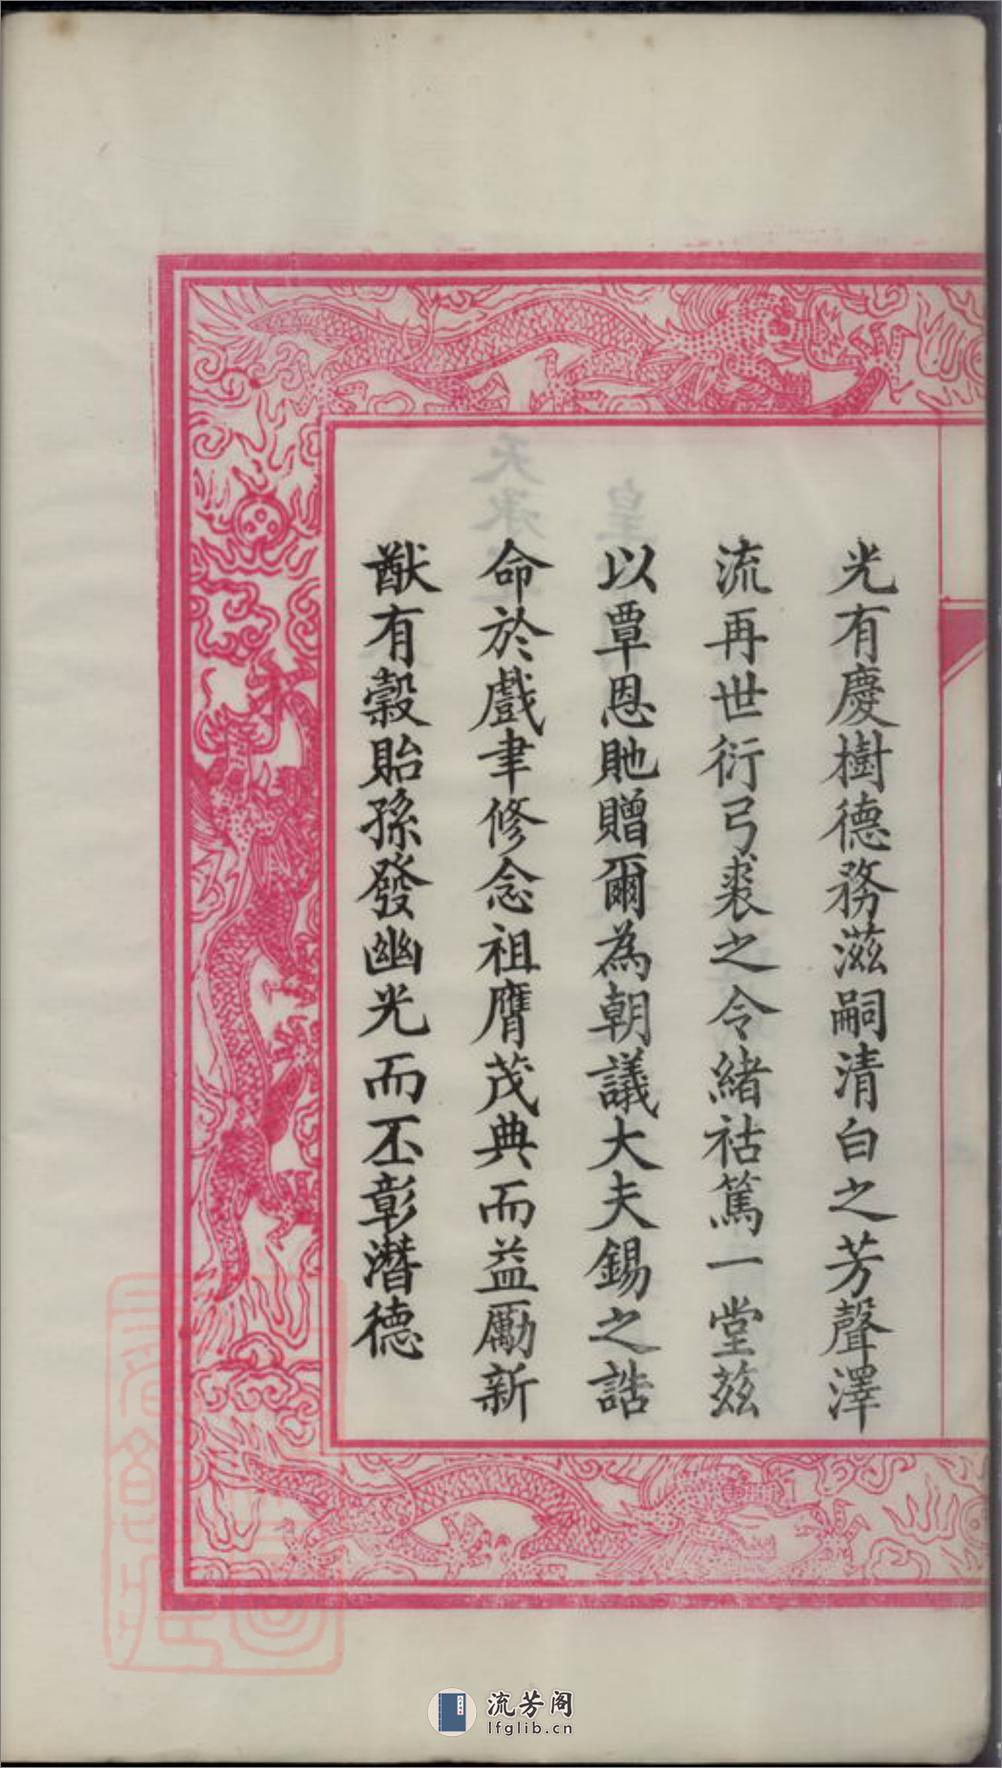 光有慶樹德務滋嗣清白之芳聲澤
流再世衍弓裘之令緒祜篤一堂茲
以覃恩貤贈爾為朝議大夫錫之誥
命於戲聿修念祖膺茂典而益勵新
猷有穀貽孫發幽光而丕彰潛德
流芳阁
lfglib.cn